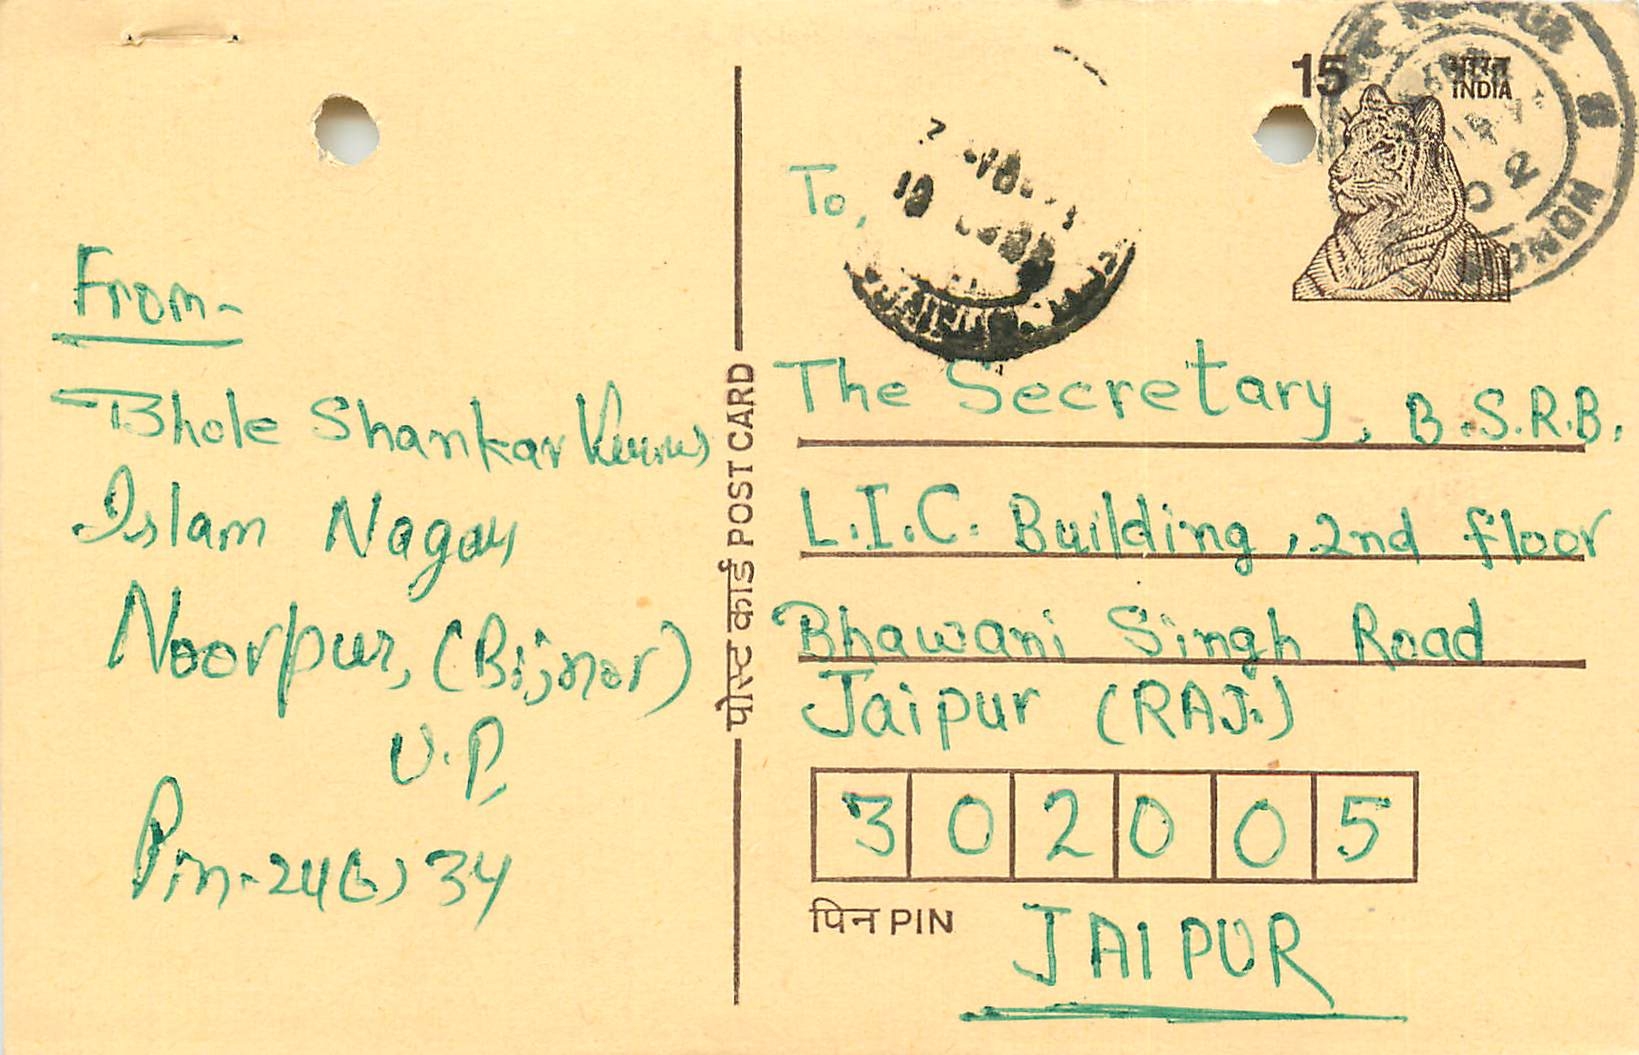 From-
Bhole Shankar Kumar
Islam Nagar
Noorpur, (Bijnor)
U.P.
Pin-246734
पोस्ट कार्ड POST CARD
15
भारत
INDIA
To,
The Secretary, B.S.R.B.
L.I.C. Building, 2nd floor
Bhawani Singh Road
Jaipur (RAJ.)
302005
पिन PIN
JAIPUR